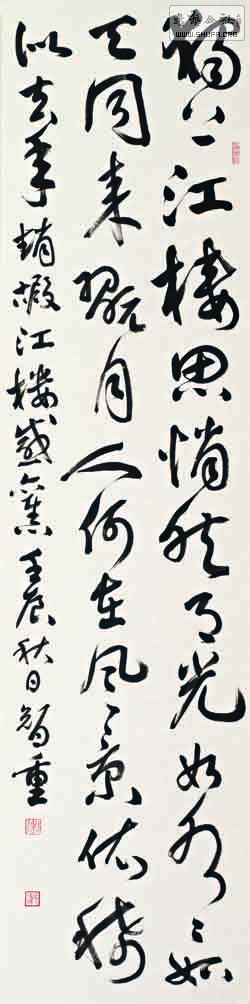 WWW.SHUFA.ORG
獨上江樓思悄然月光如水々如
天同来翫月人何在風景依稀
似去年趙嘏江樓感舊壬辰秋日智重